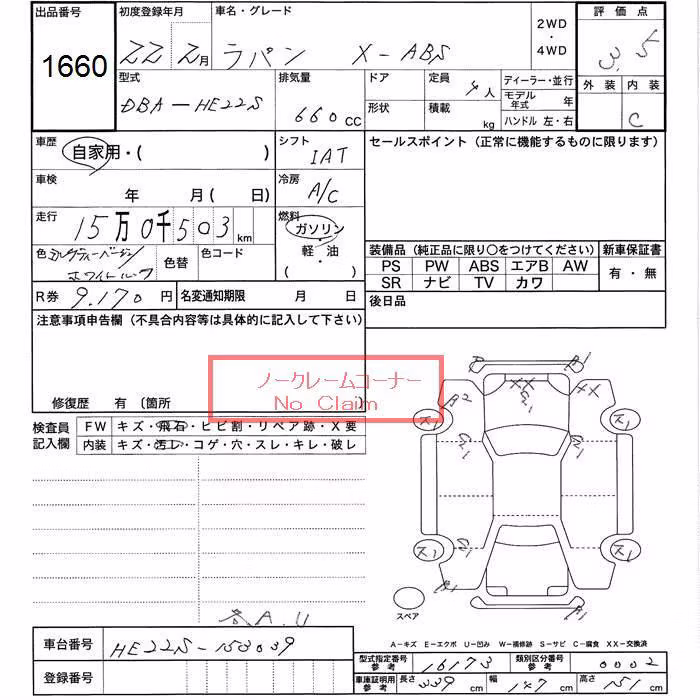 出品番号
1660
初度登録年月
22 2月
車名・グレード
ラパン X-ABS
2WD
・
4WD
評価点
3.5
外装 内装
C
型式
DBA-HE22S
排気量
660cc
ドア
形状
定員
4人
積載
kg
ディーラー・並行
モデル年式 年
ハンドル 左・右
車歴
自家用・( )
シフト
IAT
セールスポイント(正常に機能するものに限ります)
車検
年 月( 日)
冷房
A/C
走行
15万0千503km
燃料
ガソリン
軽・油
( )
色
色替
色コード
装備品(純正品に限り○をつけてください)
新車保証書
PS PW ABS エアB AW
SR ナビ TV カワ
有・無
R券 9.170円
名変通知期限 月 日
後日品
注意事項申告欄(不具合内容等は具体的に記入して下さい)
ノークレームコーナー
No Claim
修復歴 有(箇所
検査員記入欄
FW キズ・飛石・ヒビ割・リペア跡・X要
内装 キズ・汚レ・コゲ・穴・スレ・キレ・破レ
A2
XX
G1
XX
B1
ス1
ス1
G1
G1
ス1
ス1
G1
B1
B1
スペア
A.U
A-キズ E-エクボ U-凹み W-補修跡 S-サビ C-腐食 XX-交換済
車台番号 HE22S-153039
登録番号
型式指定番号参考 16173
類別区分番号参考 0002
車庫証明用参考 長さ 339cm 幅 147cm 高さ 151cm